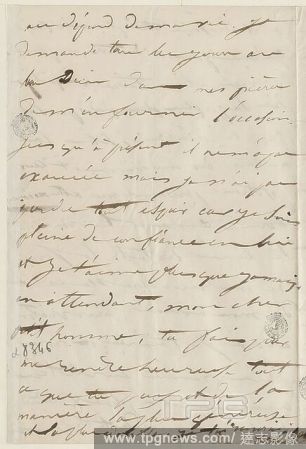 au dépend de ma vie, je
demande tous les jours au
bon Dieu dans mes prières
de m'en fournir l'occasion
jusqu'à présent il ne m'a pas
exaucée mais je n'ai pas
perdu tout espoir car je suis
pleine de confiance en lui
et je t'aime plus que jamais
en attendant, mon cher
petit homme, tu fais pour
me rendre heureuse tout
ce que tu peux et de la
manière la plus généreuse
et la plus
a 8346
www.tpgnews.com / 達志影像